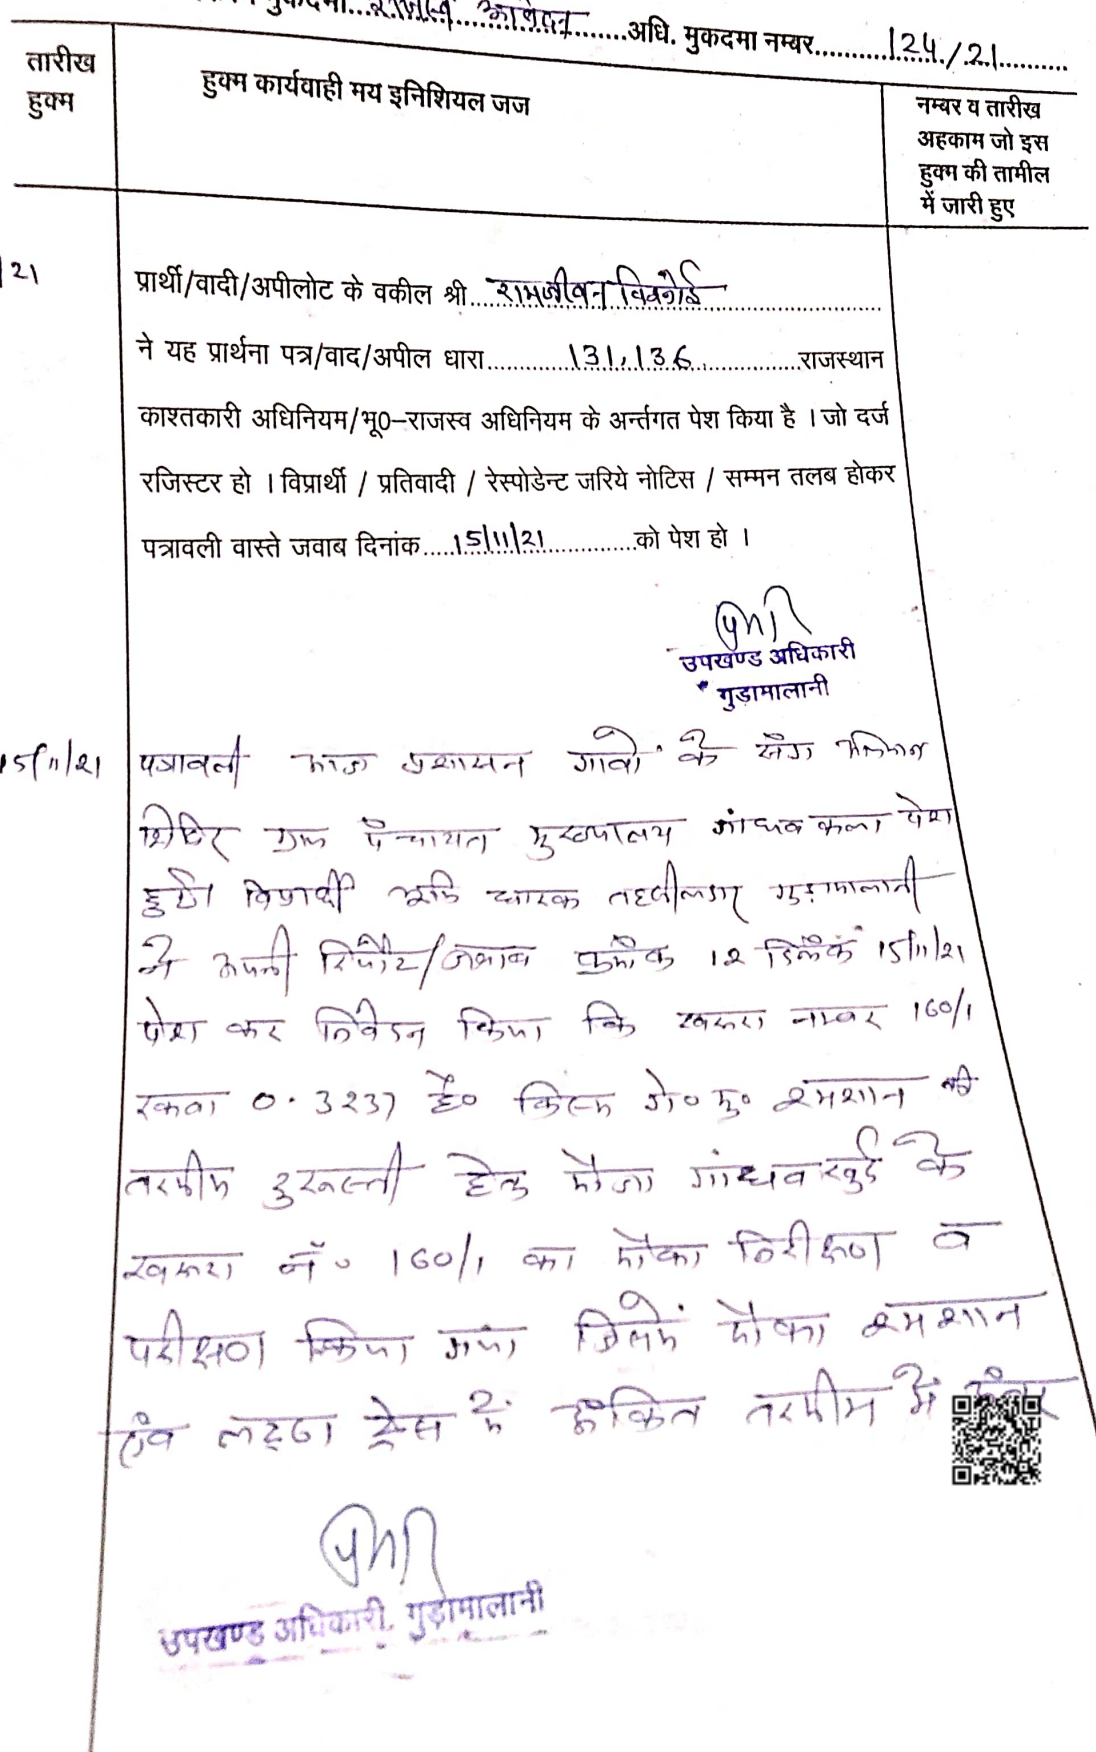 मुकदमा...राजस्व आवेदन...अधि. मुकदमा नम्बर...124/21...
तारीख हुक्म
हुक्म कार्यवाही मय इनिशियल जज
नम्बर व तारीख
अहकाम जो इस
हुक्म की तामील
में जारी हुए
21
प्रार्थी/वादी/अपीलोट के वकील श्री...रामजीवन विश्नोई...
ने यह प्रार्थना पत्र/वाद/अपील धारा...131,136...राजस्थान
काश्तकारी अधिनियम/भू0-राजस्व अधिनियम के अर्न्तगत पेश किया है । जो दर्ज
रजिस्टर हो । विप्रार्थी / प्रतिवादी / रेस्पोडेन्ट जरिये नोटिस / सम्मन तलब होकर
पत्रावली वास्ते जवाब दिनांक...15/11/21...को पेश हो ।
उपखण्ड अधिकारी
गुड़ामालानी
15/11/21
पत्रावली आज प्रशासन गावों के संग अभियान
शिविर ग्राम पंचायत मुख्यालय गांधव कला पेश
हुई। विप्रार्थी भूमि धारक तहसीलदार गुड़ामालानी
ने अपनी रिपोर्ट/जवाब क्रमांक 12 दिनांक 15/11/21
पेश कर निवेदन किया कि खसरा नम्बर 160/1
रकबा 0.3237 है० किस्म गै० मु० श्मशान की
तरमीम दुरूस्ती हेतु मौजा गांधव खुर्द के
खसरा नं० 160/1 का मौका निरीक्षण व
परीक्षण किया गया जिसमें मौका श्मशान
एंव लट्ठा ट्रेस में अंकित तरमीम में अंतर
उपखण्ड अधिकारी, गुड़ामालानी